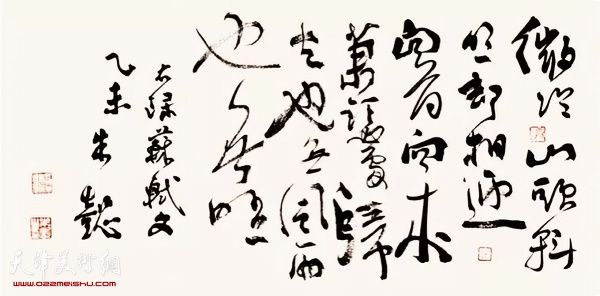 微冷山頭斜
照却相迎
回首向來
蕭瑟處歸
去也无風雨
也无晴
右録蘇軾文
乙未朱懿
天津美术网
www.022meishu.com